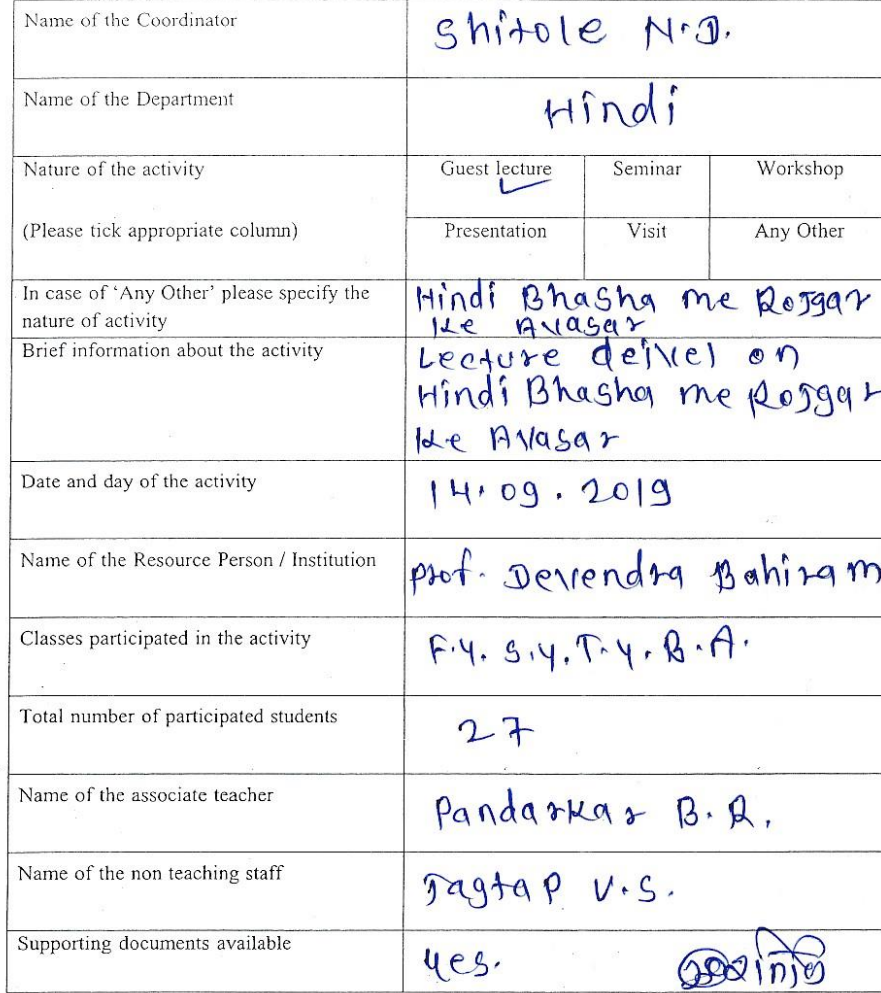 Name of the Coordinator
Shitole N.D.
Name of the Department
Hindi
Nature of the activity
Guest lecture
Seminar
Workshop
(Please tick appropriate column)
Presentation
Visit
Any Other
In case of 'Any Other' please specify the
nature of activity
Hindi Bhasha me Rojgar
ke Avasar
Brief information about the activity
Lecture deivel on
Hindi Bhasha me Rojgar
ke Avasar
Date and day of the activity
14.09.2019
Name of the Resource Person / Institution
Prof. Devendra Bahiram
Classes participated in the activity
F.Y. S.Y. T.Y. B.A.
Total number of participated students
27
Name of the associate teacher
Pandarkar B.R.
Name of the non teaching staff
Jagtap V.S.
Supporting documents available
Yes.